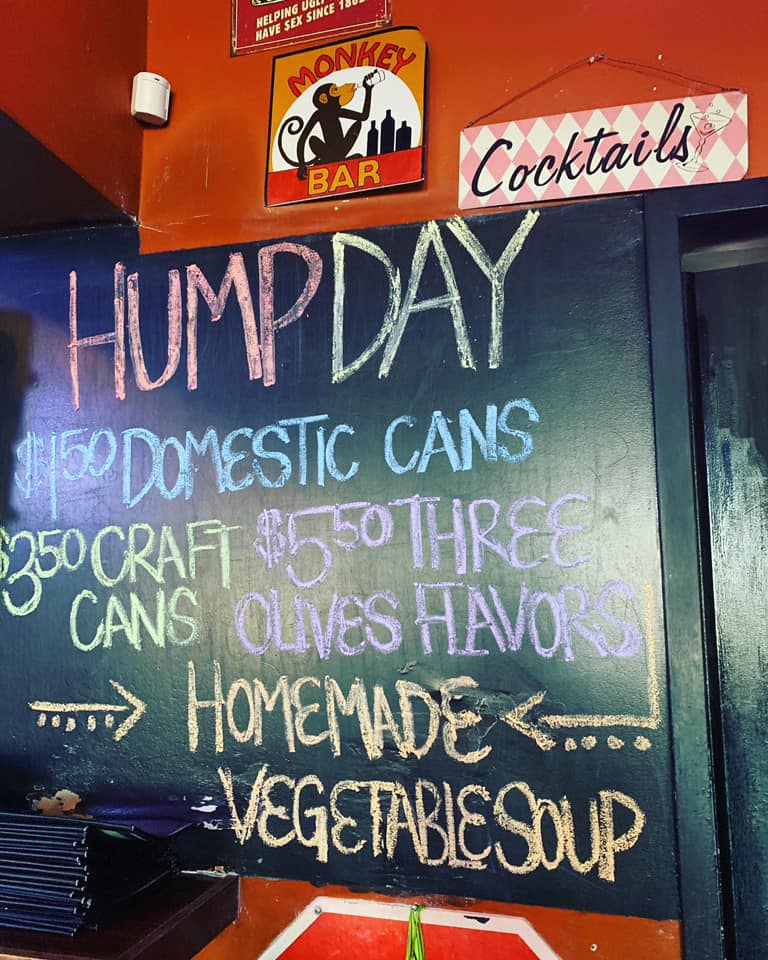 HELPING UGLY
HAVE SEX SINCE 1862
MONKEY
BAR
Cocktails
HUMP DAY
$1.50 DOMESTIC CANS
$3.50 CRAFT
CANS
$5.50 THREE
OLIVES FLAVORS
HOMEMADE
VEGETABLE SOUP